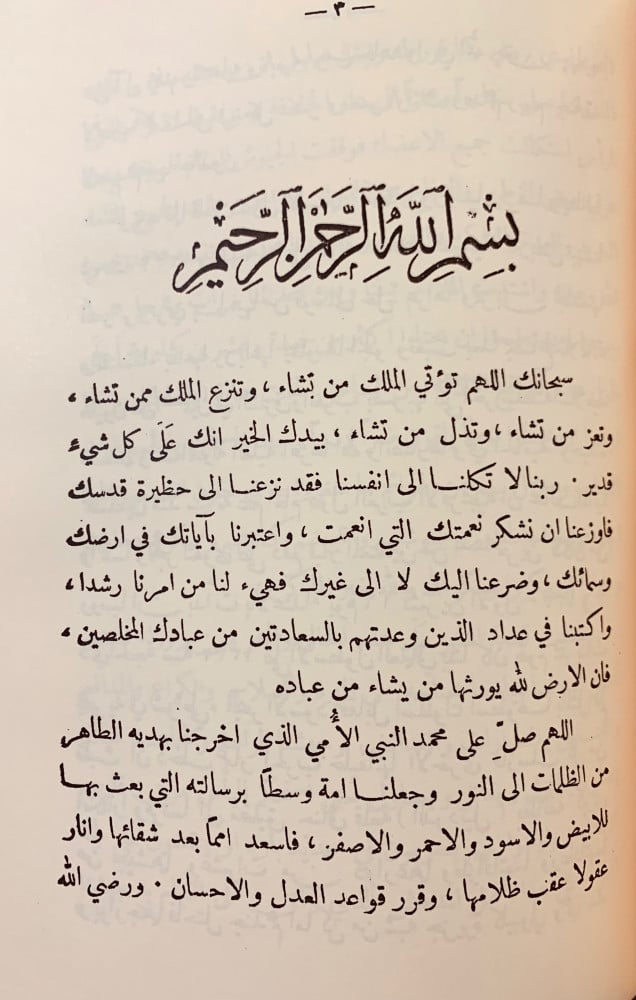 — ٣ —
بِسْمِ اللّٰهِ الرَّحْمٰنِ الرَّحِيْمِ
سبحانك اللهم تؤتي الملك من تشاء ، وتنزع الملك ممن تشاء ،
وتعز من تشاء ، وتذل من تشاء ، بيدك الخير انك عَلَى كل شيءٍ
قدير . ربنا لا تكلنا الى انفسنا فقد نزعنا الى حظيرة قدسك
فاوزعنا ان نشكر نعمتك التي انعمت ، واعتبرنا بآياتك في ارضك
وسمائك ، وضرعنا اليك لا الى غيرك فهيء لنا من امرنا رشدا ،
واكتبنا في عداد الذين وعدتهم بالسعادتين من عبادك المخلصين ،
فان الارض لله يورثها من يشاء من عباده
اللهم صلِّ على محمد النبي الأُمي الذي اخرجنا بهديه الطاهر
من الظلمات الى النور وجعلنا امة وسطًا برسالته التي بعث بها
للابيض والاسود والاحمر والاصفر ، فاسعد امماً بعد شقائها وانار
عقولا عقب ظلامها ، وقرر قواعد العدل والاحسان . ورضي الله